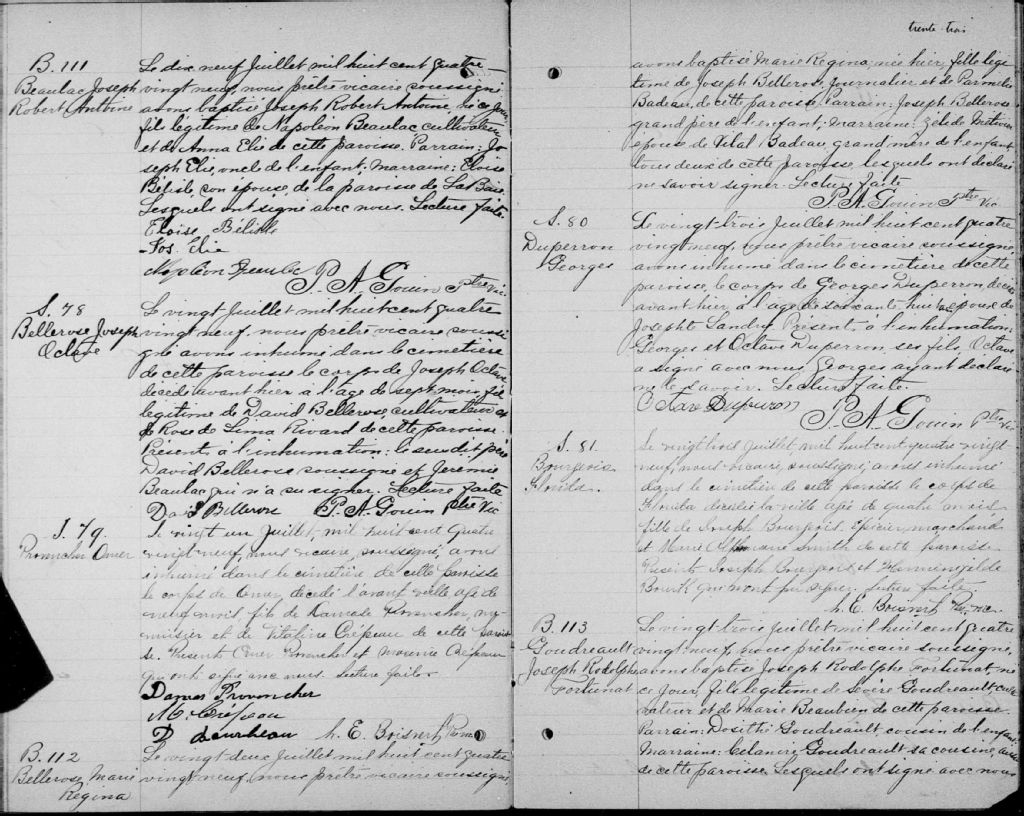 B. 111
Beaulac Joseph
Robert Antoine
Le dix neuf Juillet mil huit cent quatre
vingt neuf, nous prêtre vicaire soussigné
avons baptisé Joseph Robert Antoine, né ce jour,
fils légitime de Napoléon Beaulac cultivateur
et de Anna Elie de cette paroisse. Parrain: Jo
seph Elie, oncle de l'enfant; Marraine: Eloise
Bélisle son épouse, de la paroisse de La Baie.
Lesquels ont signé avec nous. Lecture faite.
Eloise Bélisle
Jos. Elie
Napoléon Beaulac P. A. Gouin Ptre Vic
S. 78
Bellerose Joseph
Octave
Le vingt Juillet mil huit cent quatre
vingt neuf, nous prêtre vicaire soussi
gné avons inhumé dans le cimetière
de cette paroisse le corps de Joseph Octave
décédé avant hier à l'age de sept mois fils
légitime de David Bellerose, cultivateur et
de Rose de Lima Rivard de cette paroisse.
Présents à l'inhumation: le susdit père
David Bellerose soussigné et Jeremie
Beaulac qui n'a su signer. Lecture faite
David Bellerose P. A. Gouin Ptre Vic
S. 79.
Provencher Omer
Le vingt un Juillet, mil huit cent quatre
vingt neuf, nous vicaire, soussigné, avons
inhumé dans le cimetière de cette paroisse
le corps de Omer, décédé l'avant veille agé de
neuf mois fils de Damase Provencher, me
nuisier et de Vitaline Crépeau de cette parois
se. Présents Omer Provencher et Crépeau
qui ont signé avec nous. Lecture faite.
Damas Provencher
M. Crépeau
D h. E. Boisvert Ptre
B. 112
Bellerose Marie
Regina
Le vingt deux Juillet mil huit cent quatre
vingt neuf, nous prêtre vicaire soussigné,
trente-trois
avons baptisé Marie Regina, née hier, fille légi
time de Joseph Bellerose, Journalier et de Parmelie
Badeau, de cette paroisse. Parrain: Joseph Bellerose
grand père de l'enfant; Marraine: Zélide Metivier
épouse de Vital Badeau, grand mère de l'enfant
tous deux de cette paroisse, lesquels ont déclaré
ne savoir signer. Lecture faite
P. A. Gouin Ptre Vic
S. 80
Duperron
Georges
Le vingt-trois Juillet mil huit cent quatre
vingt neuf, nous prêtre vicaire soussigné
avons inhumé dans le cimetière de cette
paroisse, le corps de Georges Duperron, décédé
avant hier à l'age de soixante huit époux de
Josephte Landry. Présents à l'inhumation:
Georges et Octave Duperron, ses fils, Octave
a signé avec nous, Georges ayant déclaré
ne le savoir. Lecture faite.
Octave Duperron
P. A. Gouin Ptre Vic
S. 81
Bourgeois
Florida.
Le vingt trois Juillet, mil huit cent quatre vingt
neuf, nous vicaire, soussigné, avons inhumé
dans le cimetière de cette paroisse le corps de
Florida décédée la veille agée de quatre ans
fille de Joseph Bourgeois, épicier, marchand
et Marie Smith de cette paroisse
Présents Joseph Bourgeois et Hermenegilde
Bourk qui n'ont pu signer. Lecture faite
h. E. Boisvert Ptre, vic.
B. 113
Goudreault
Joseph Rodolphe
Fortunat
Le vingt-trois Juillet mil huit cent quatre
vingt neuf, nous prêtre vicaire soussigné,
avons baptisé Joseph Rodolphe Fortunat, né
ce jour, fils légitime de Sévère Goudreault, culti
vateur et de Marie Beaubien de cette paroisse.
Parrain: Dosithé Goudreault cousin de l'enfant
Marraine: Célanire Goudreault sa cousine, aussi
de cette paroisse. Lesquels ont signé avec nous